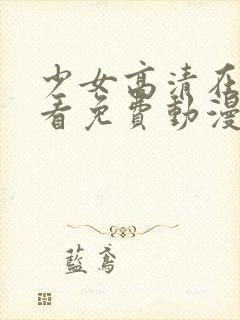 少女高清在
看免費動漫
藍鳶